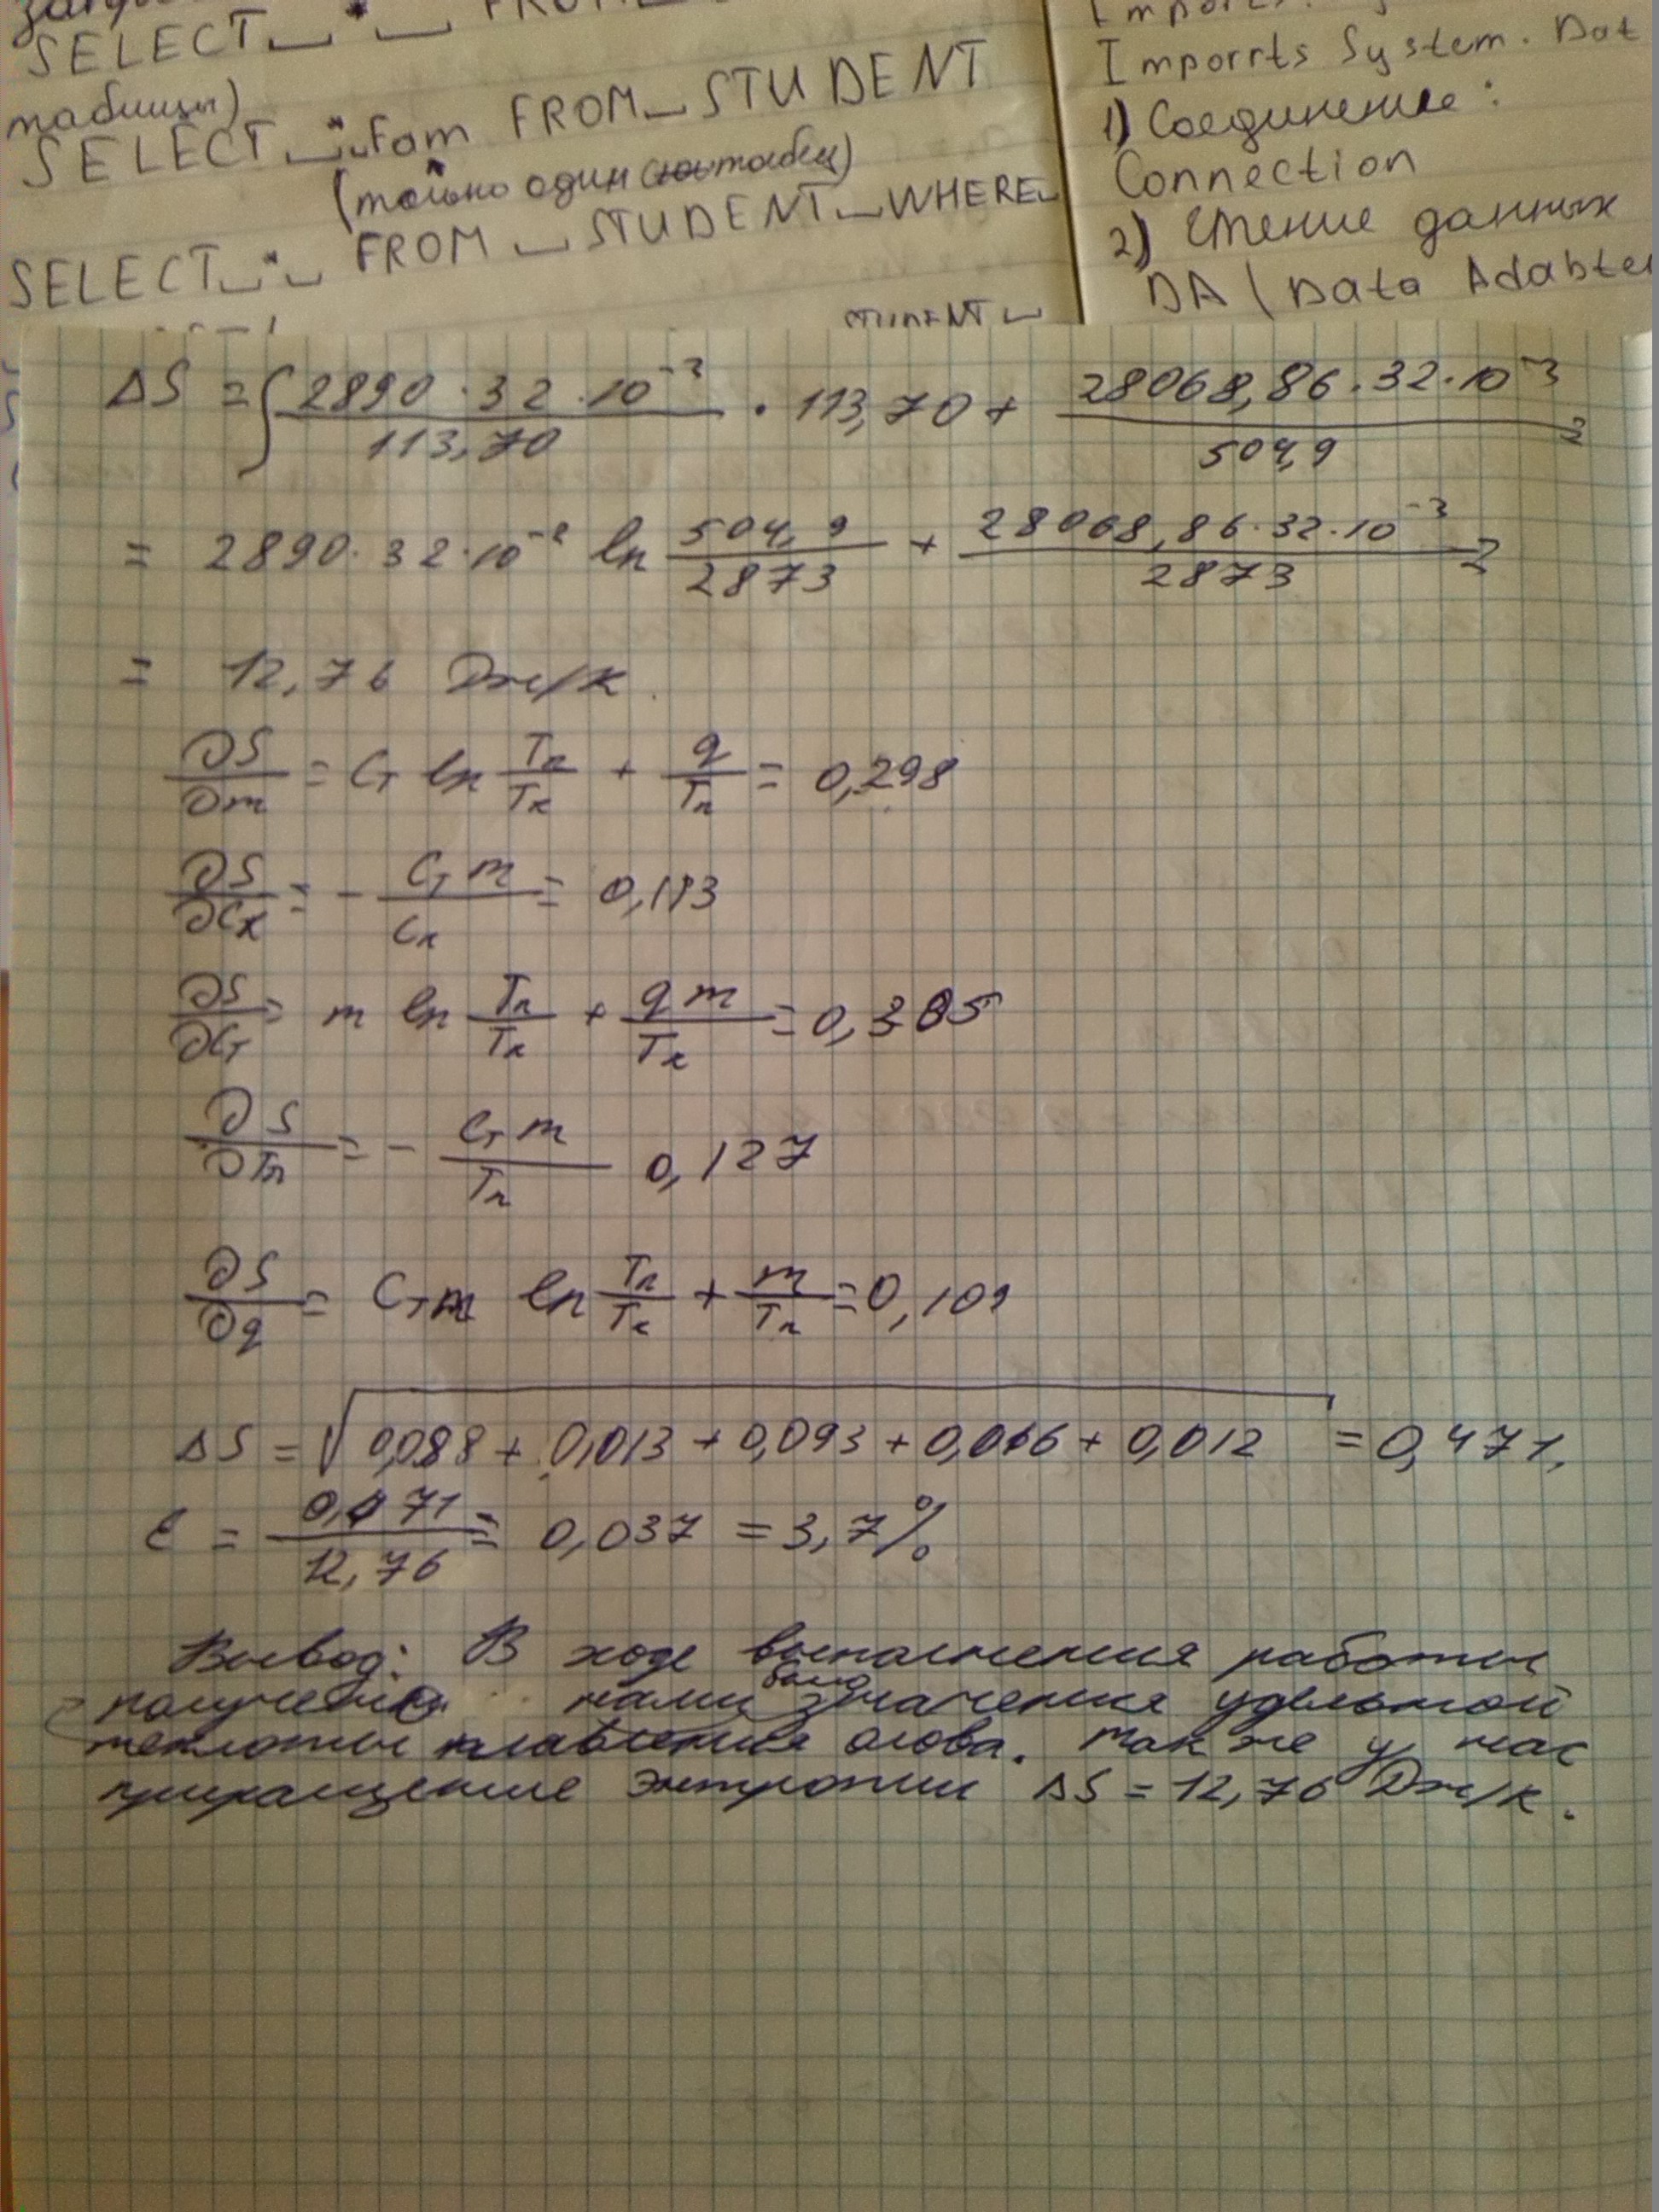 SELECT␣ * ␣ FROM
таблицы)
SELECT␣ *␣Fam FROM␣STUDENT
(только один столбец)
SELECT␣*␣ FROM ␣ STUDENT␣WHERE␣
STUDENT␣
Imports System. Dat
1) Соединение:
Connection
2) Чтение данных
DA (Data Adabter
ΔS = ∫ 2890 · 32 · 10⁻³ / 113,70 · 113,70 + 28068,86 · 32 · 10⁻³ / 504,9 =
= 2890 · 32 · 10⁻² ln 504,9 / 2873 + 28068,86 · 32 · 10⁻³ / 2873 =
= 12,76 Дж/К.
∂S/∂m = Cт ln Tп/Tк + q/Tп = 0,298
∂S/∂Cк = - Cт m / Cк = 0,113
∂S/∂Cт = m ln Tп/Tк + q m / Tк = 0,305
∂S/∂Tп = - Cт m / Tп 0,127
∂S/∂q = Cт m ln Tп/Tк + m/Tп = 0,109
ΔS = √0,088 + 0,013 + 0,093 + 0,016 + 0,012 = 0,471,
ε = 0,471 / 12,76 = 0,037 = 3,7%
Вывод: В ходе выполнения работы
было
получено нами значения удельной
теплоты плавления олова. также у нас
приращение энтропии ΔS = 12,76 Дж/К.